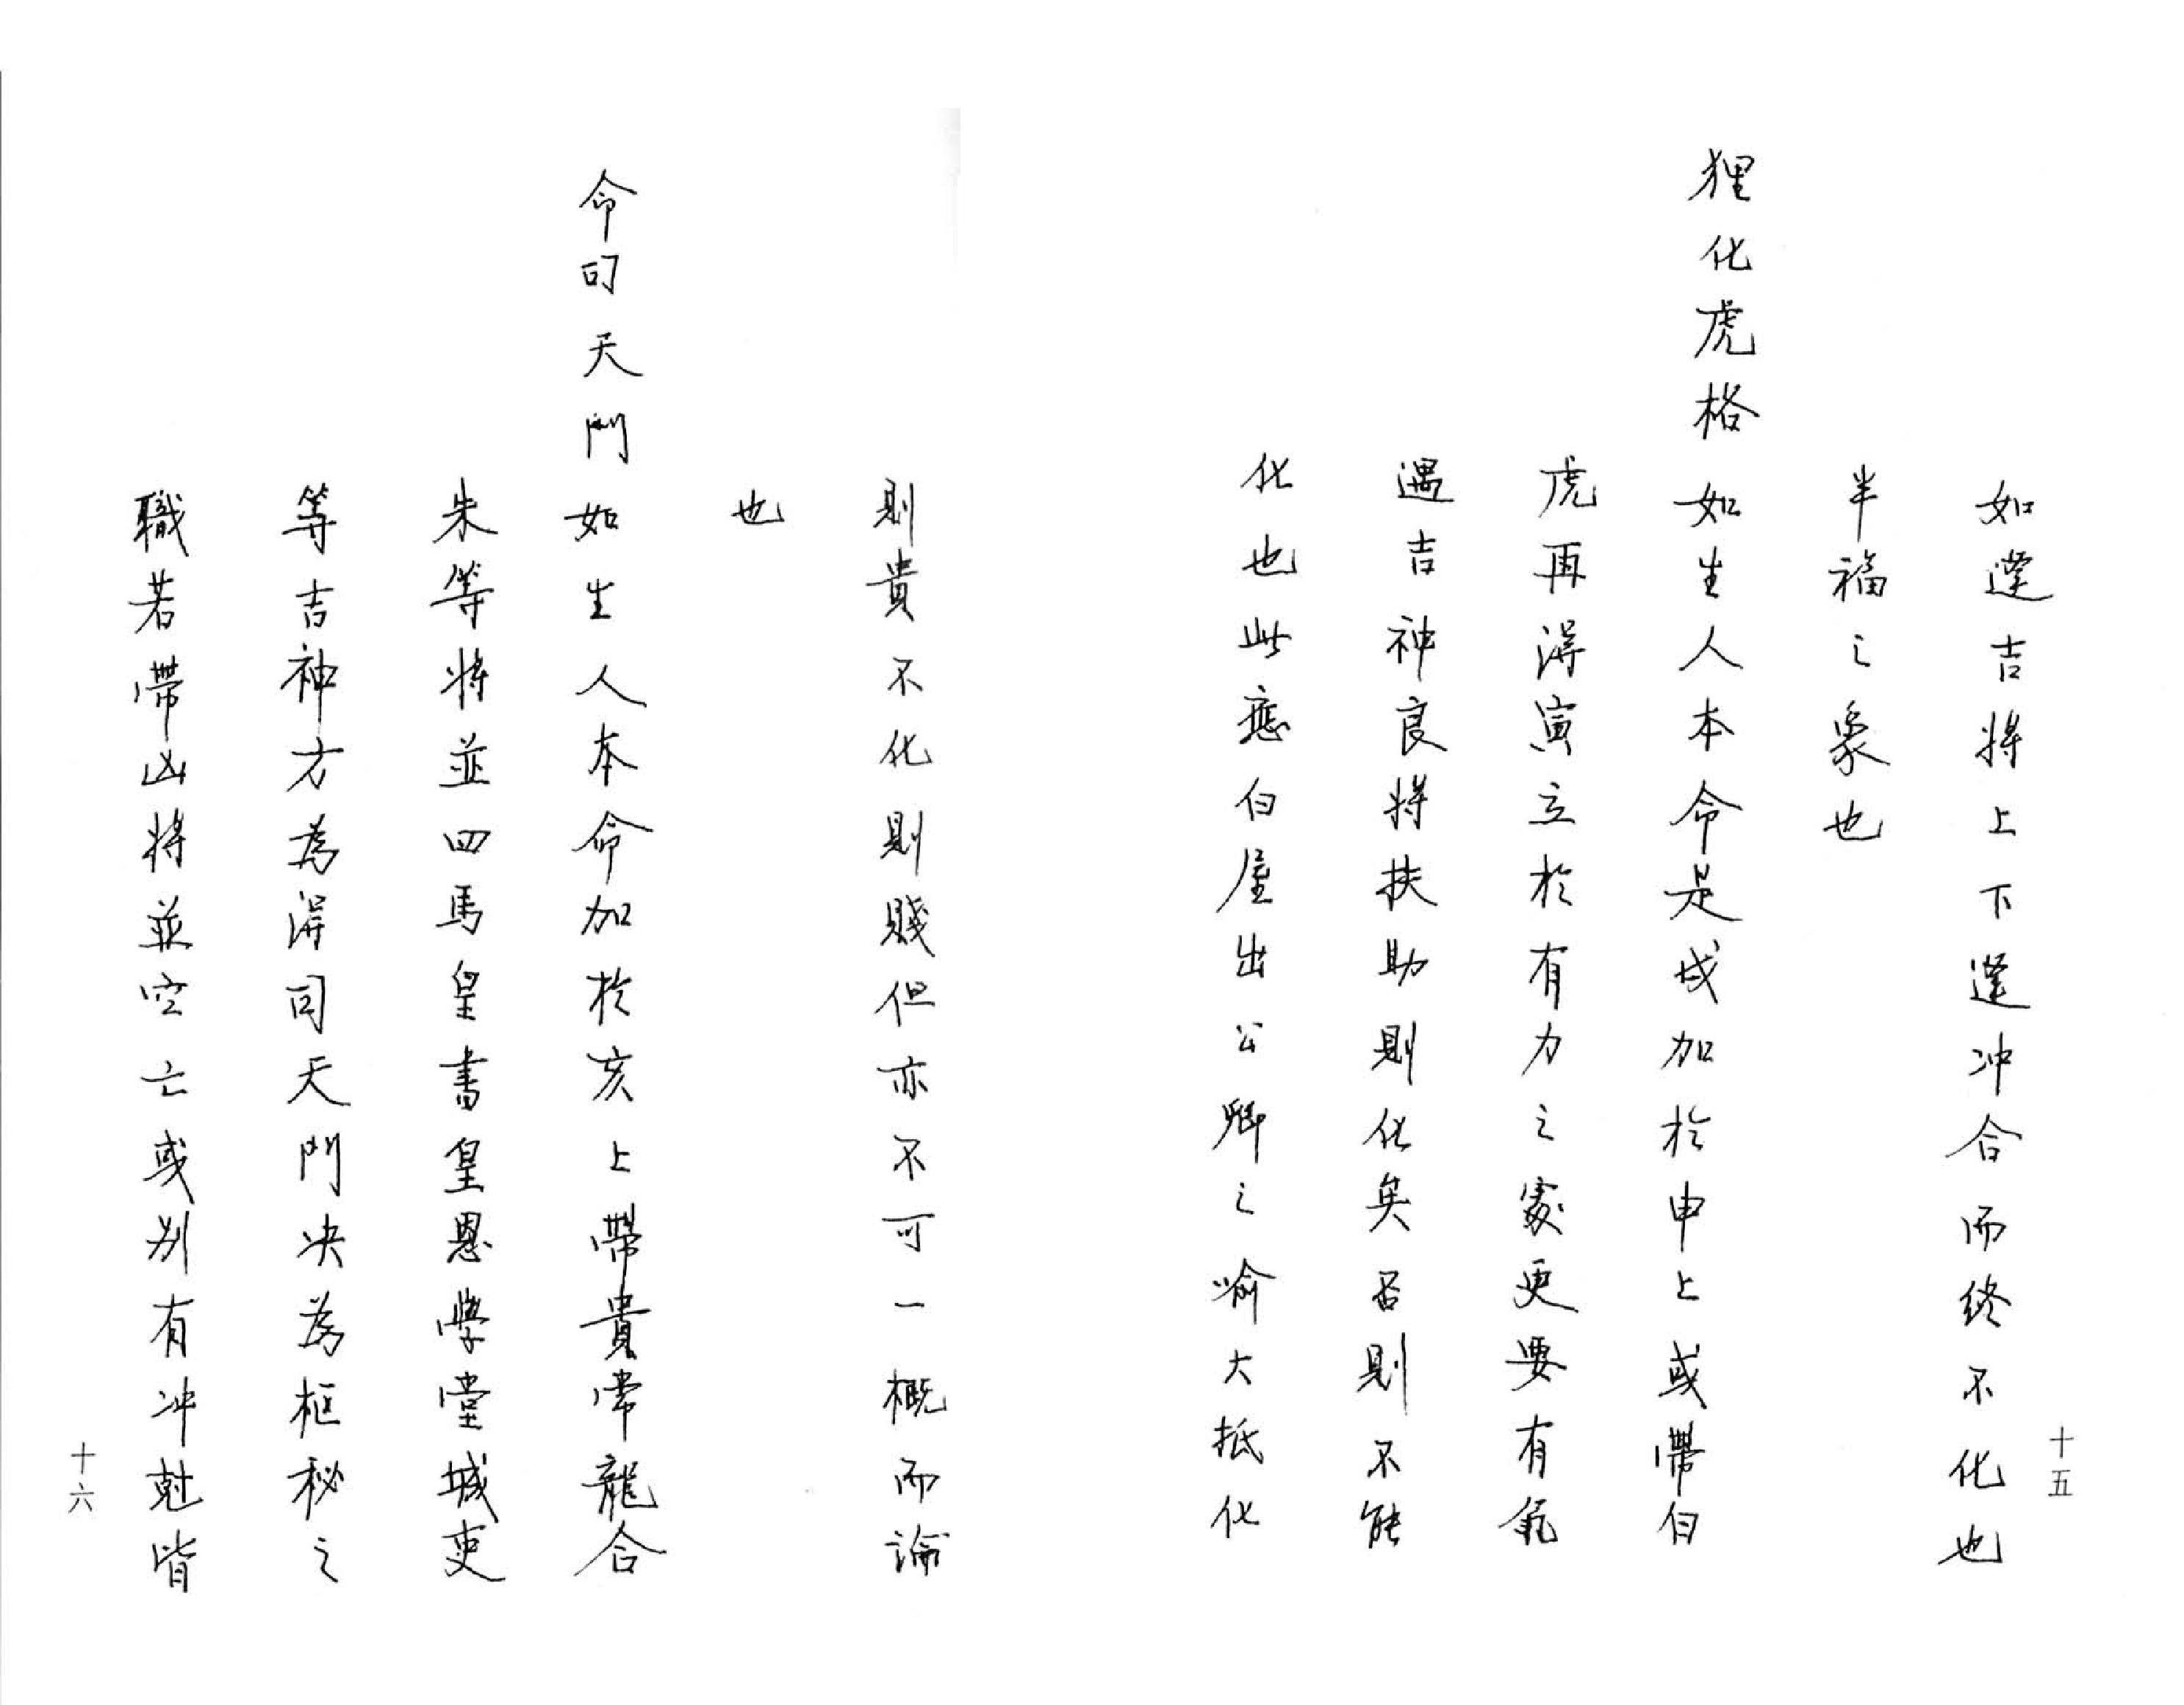 如逢吉將上下逢冲合而终不化也
半福之象也
狸化虎格如生人本命是戌加於申上或帶白
虎再得寅立於有力之處更要有氣
遇吉神良將扶助則化矣否則不能
化也此應白屋出公卿之喻大抵化
十五
則貴不化則賤但亦不可一概而論
也
命司天門如生人本命加於亥上帶貴常龍合
朱等將並四馬皇書皇恩學堂城吏
等吉神方為得司天門决為枢秘之
職若帶凶將並空亡或别有冲尅皆
十六